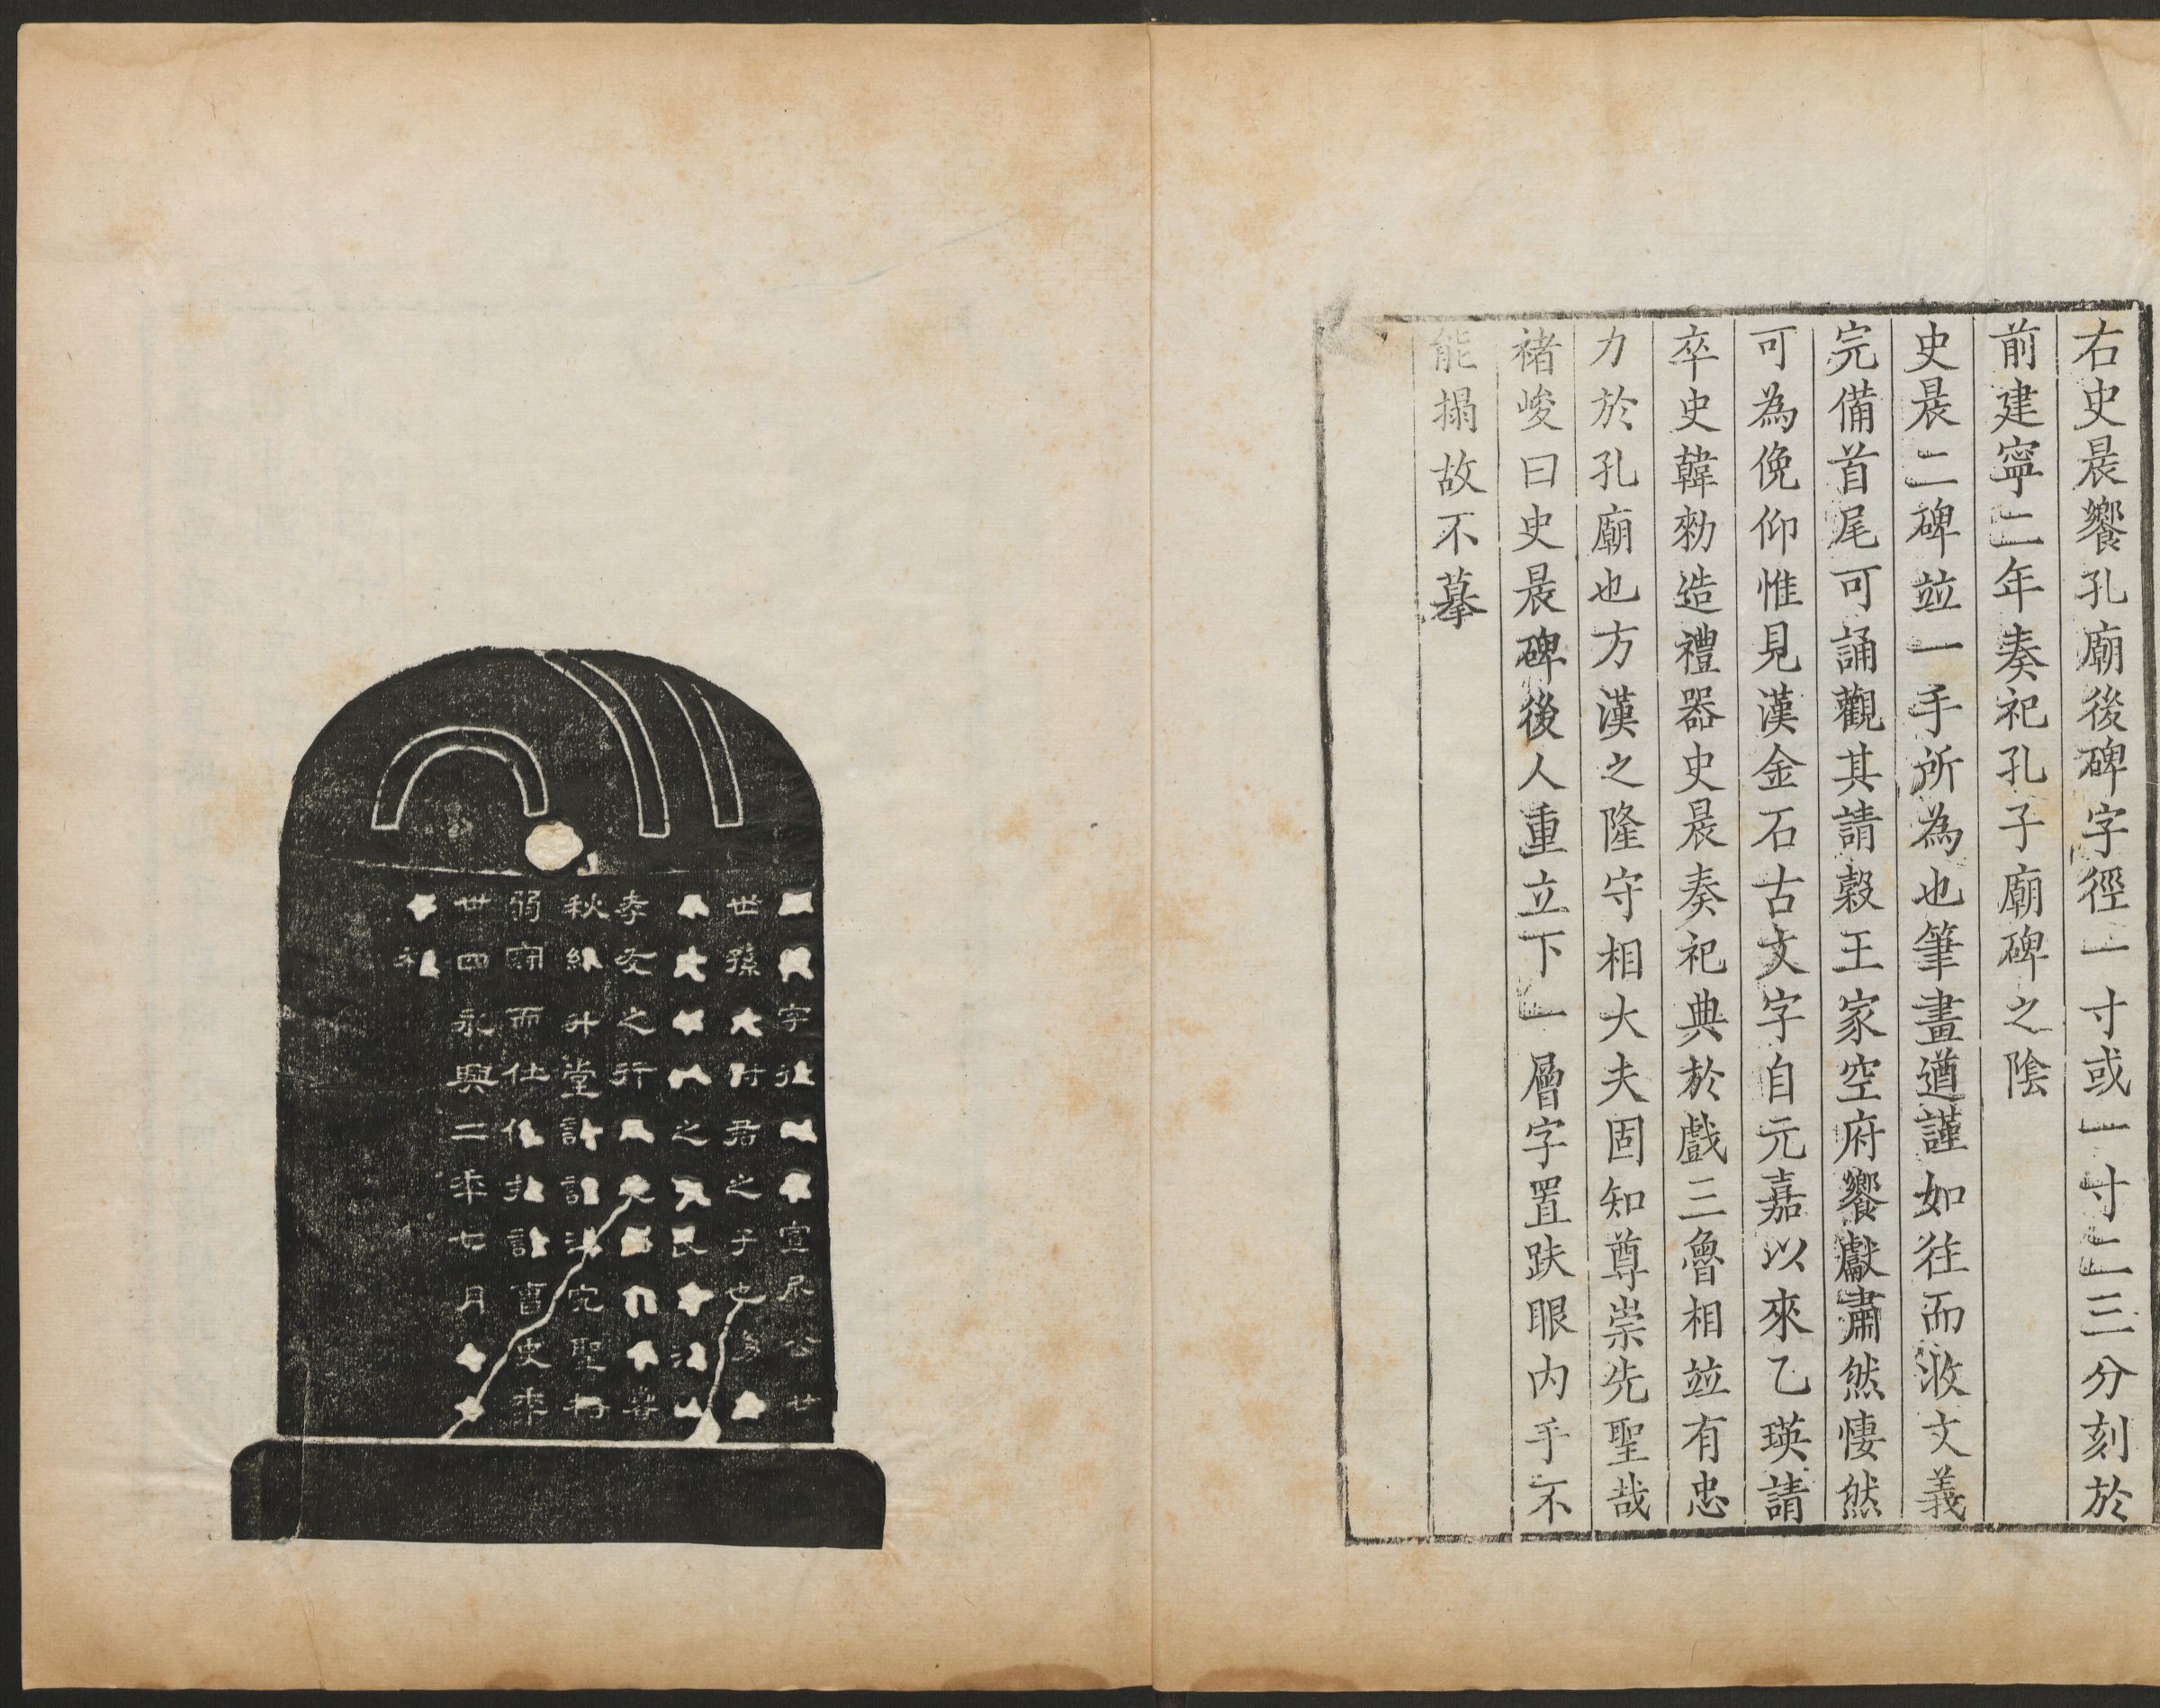 右史晨饗孔廟後碑字徑一寸或一寸二三分刻於
前建寧二年奏祀孔子廟碑之陰
史晨二碑竝一手所為也筆畫遒謹如往而㳺文義
完備首尾可誦觀其請穀王家空府饗獻肅然悽然
可為俛仰惟見漢金石古文字自元嘉以來乙瑛請
卒史韓勑造禮器史晨奏祀典於戲三魯相竝有忠
力於孔廟也方漢之隆守相大夫固知尊崇先聖哉
褚峻曰史晨碑後人重立下一層字置趺眼内手不
能搨故不摹
字宣尼公廿
世孫君之子也
之民
孝友之行
秋升堂究聖
弱而仕曹史年
卌四永興二年七月